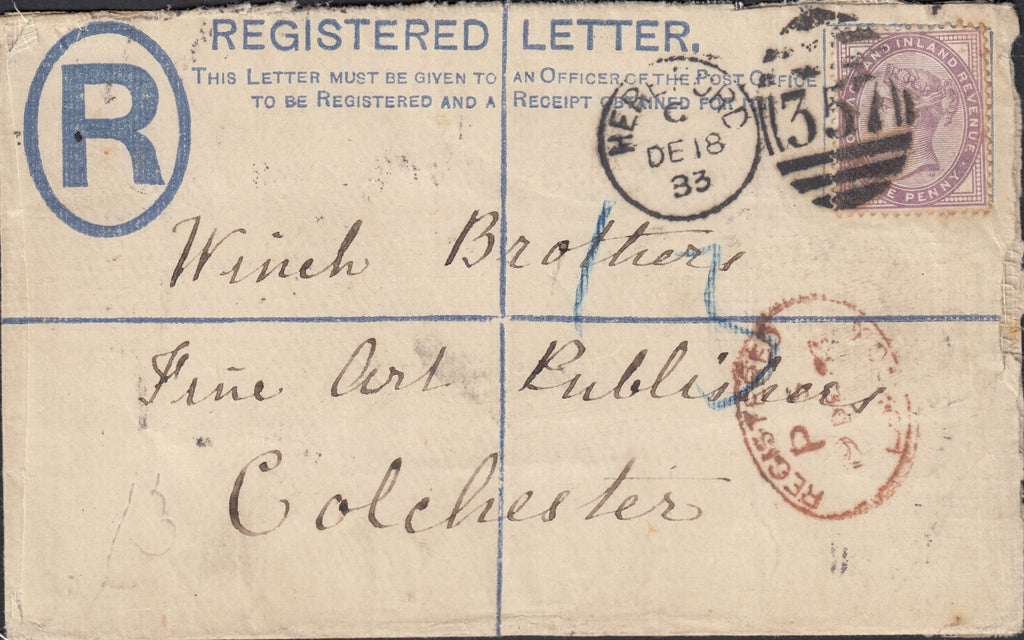 REGISTERED LETTER.
THIS LETTER MUST BE GIVEN TO AN OFFICER OF THE POST OFFICE
TO BE REGISTERED AND A RECEIPT OBTAINED FOR
R
HEREFORD
C
DE 18
83
357
AND INLAND REVENUE
PENNY
Winch Brothers
13
Fine Art Publishers
REGISTERED
P
Colchester
13